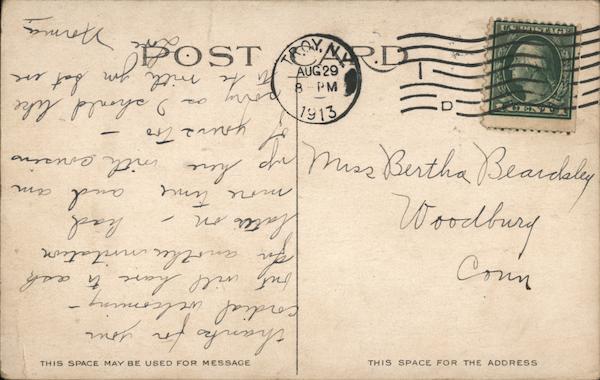 POST CARD
TROY, N.Y.
AUG 29
8 - PM
1913
1
D
U.S. POSTAGE
Thanks for your
cordial welcoming -
but will have to ask
for another invitation
later on - had
more time and am
up here with cousins
of yours too -
sorry as I should like
to be with you but
Love
Norma
Miss Bertha Beardsley
Woodbury
Conn
THIS SPACE MAY BE USED FOR MESSAGE
THIS SPACE FOR THE ADDRESS